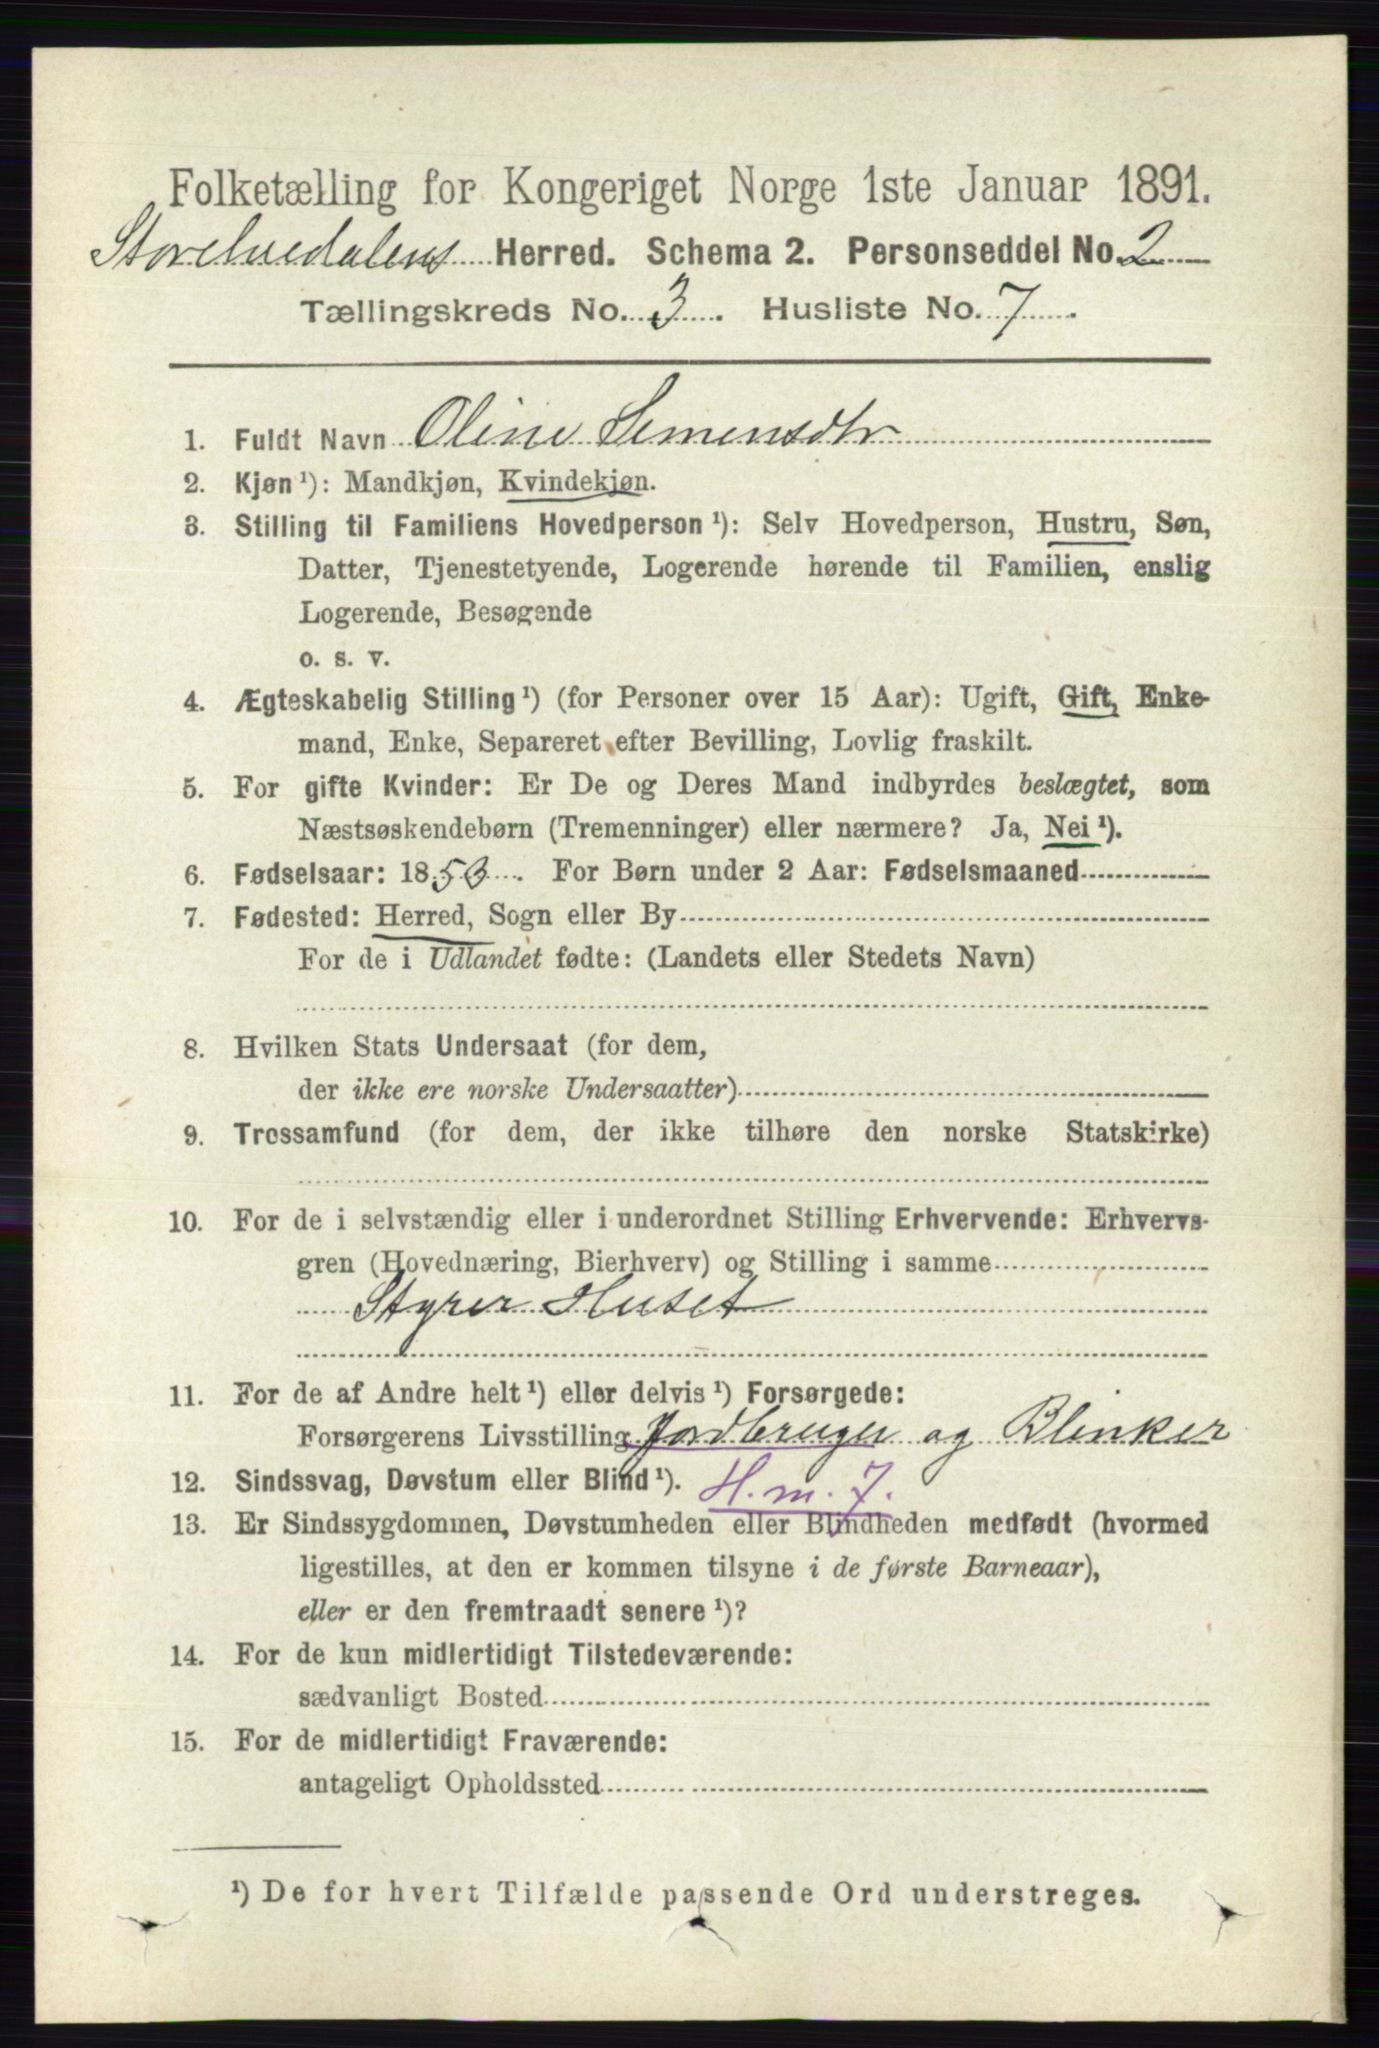 Folketælling for Kongeriget Norge 1ste Januar 1891.
Storelvedalens Herred. Schema 2. Personseddel No. 2
Tællingskreds No. 3. Husliste No. 7.
1. Fuldt Navn Oline Semensdtr
2. Kjøn ¹): Mandkjøn, Kvindekjøn.
3. Stilling til Familiens Hovedperson ¹): Selv Hovedperson, Hustru, Søn,
Datter, Tjenestetyende, Logerende hørende til Familien, enslig
Logerende, Besøgende
o. s. v.
4. Ægteskabelig Stilling ¹) (for Personer over 15 Aar): Ugift, Gift, Enke-
mand, Enke, Separeret efter Bevilling, Lovlig fraskilt.
5. For gifte Kvinder: Er De og Deres Mand indbyrdes beslægtet, som
Næstsøskendebørn (Tremenninger) eller nærmere? Ja, Nei ¹).
6. Fødselsaar: 1853. For Børn under 2 Aar: Fødselsmaaned
7. Fødested: Herred, Sogn eller By
For de i Udlandet fødte: (Landets eller Stedets Navn)
8. Hvilken Stats Undersaat (for dem,
der ikke ere norske Undersaatter)
9. Trossamfund (for dem, der ikke tilhøre den norske Statskirke)
10. For de i selvstændig eller i underordnet Stilling Erhvervende: Erhvervs-
gren (Hovednæring, Bierhverv) og Stilling i samme
Styrer Huset
11. For de af Andre helt ¹) eller delvis ¹) Forsørgede:
Forsørgerens Livsstilling Jordbruger og Blinker
12. Sindssvag, Døvstum eller Blind ¹). H. m. 7.
13. Er Sindssygdommen, Døvstumheden eller Blindheden medfødt (hvormed
ligestilles, at den er kommen tilsyne i de første Barneaar),
eller er den fremtraadt senere ¹)?
14. For de kun midlertidigt Tilstedeværende:
sædvanligt Bosted
15. For de midlertidigt Fraværende:
antageligt Opholdssted
¹) De for hvert Tilfælde passende Ord understreges.